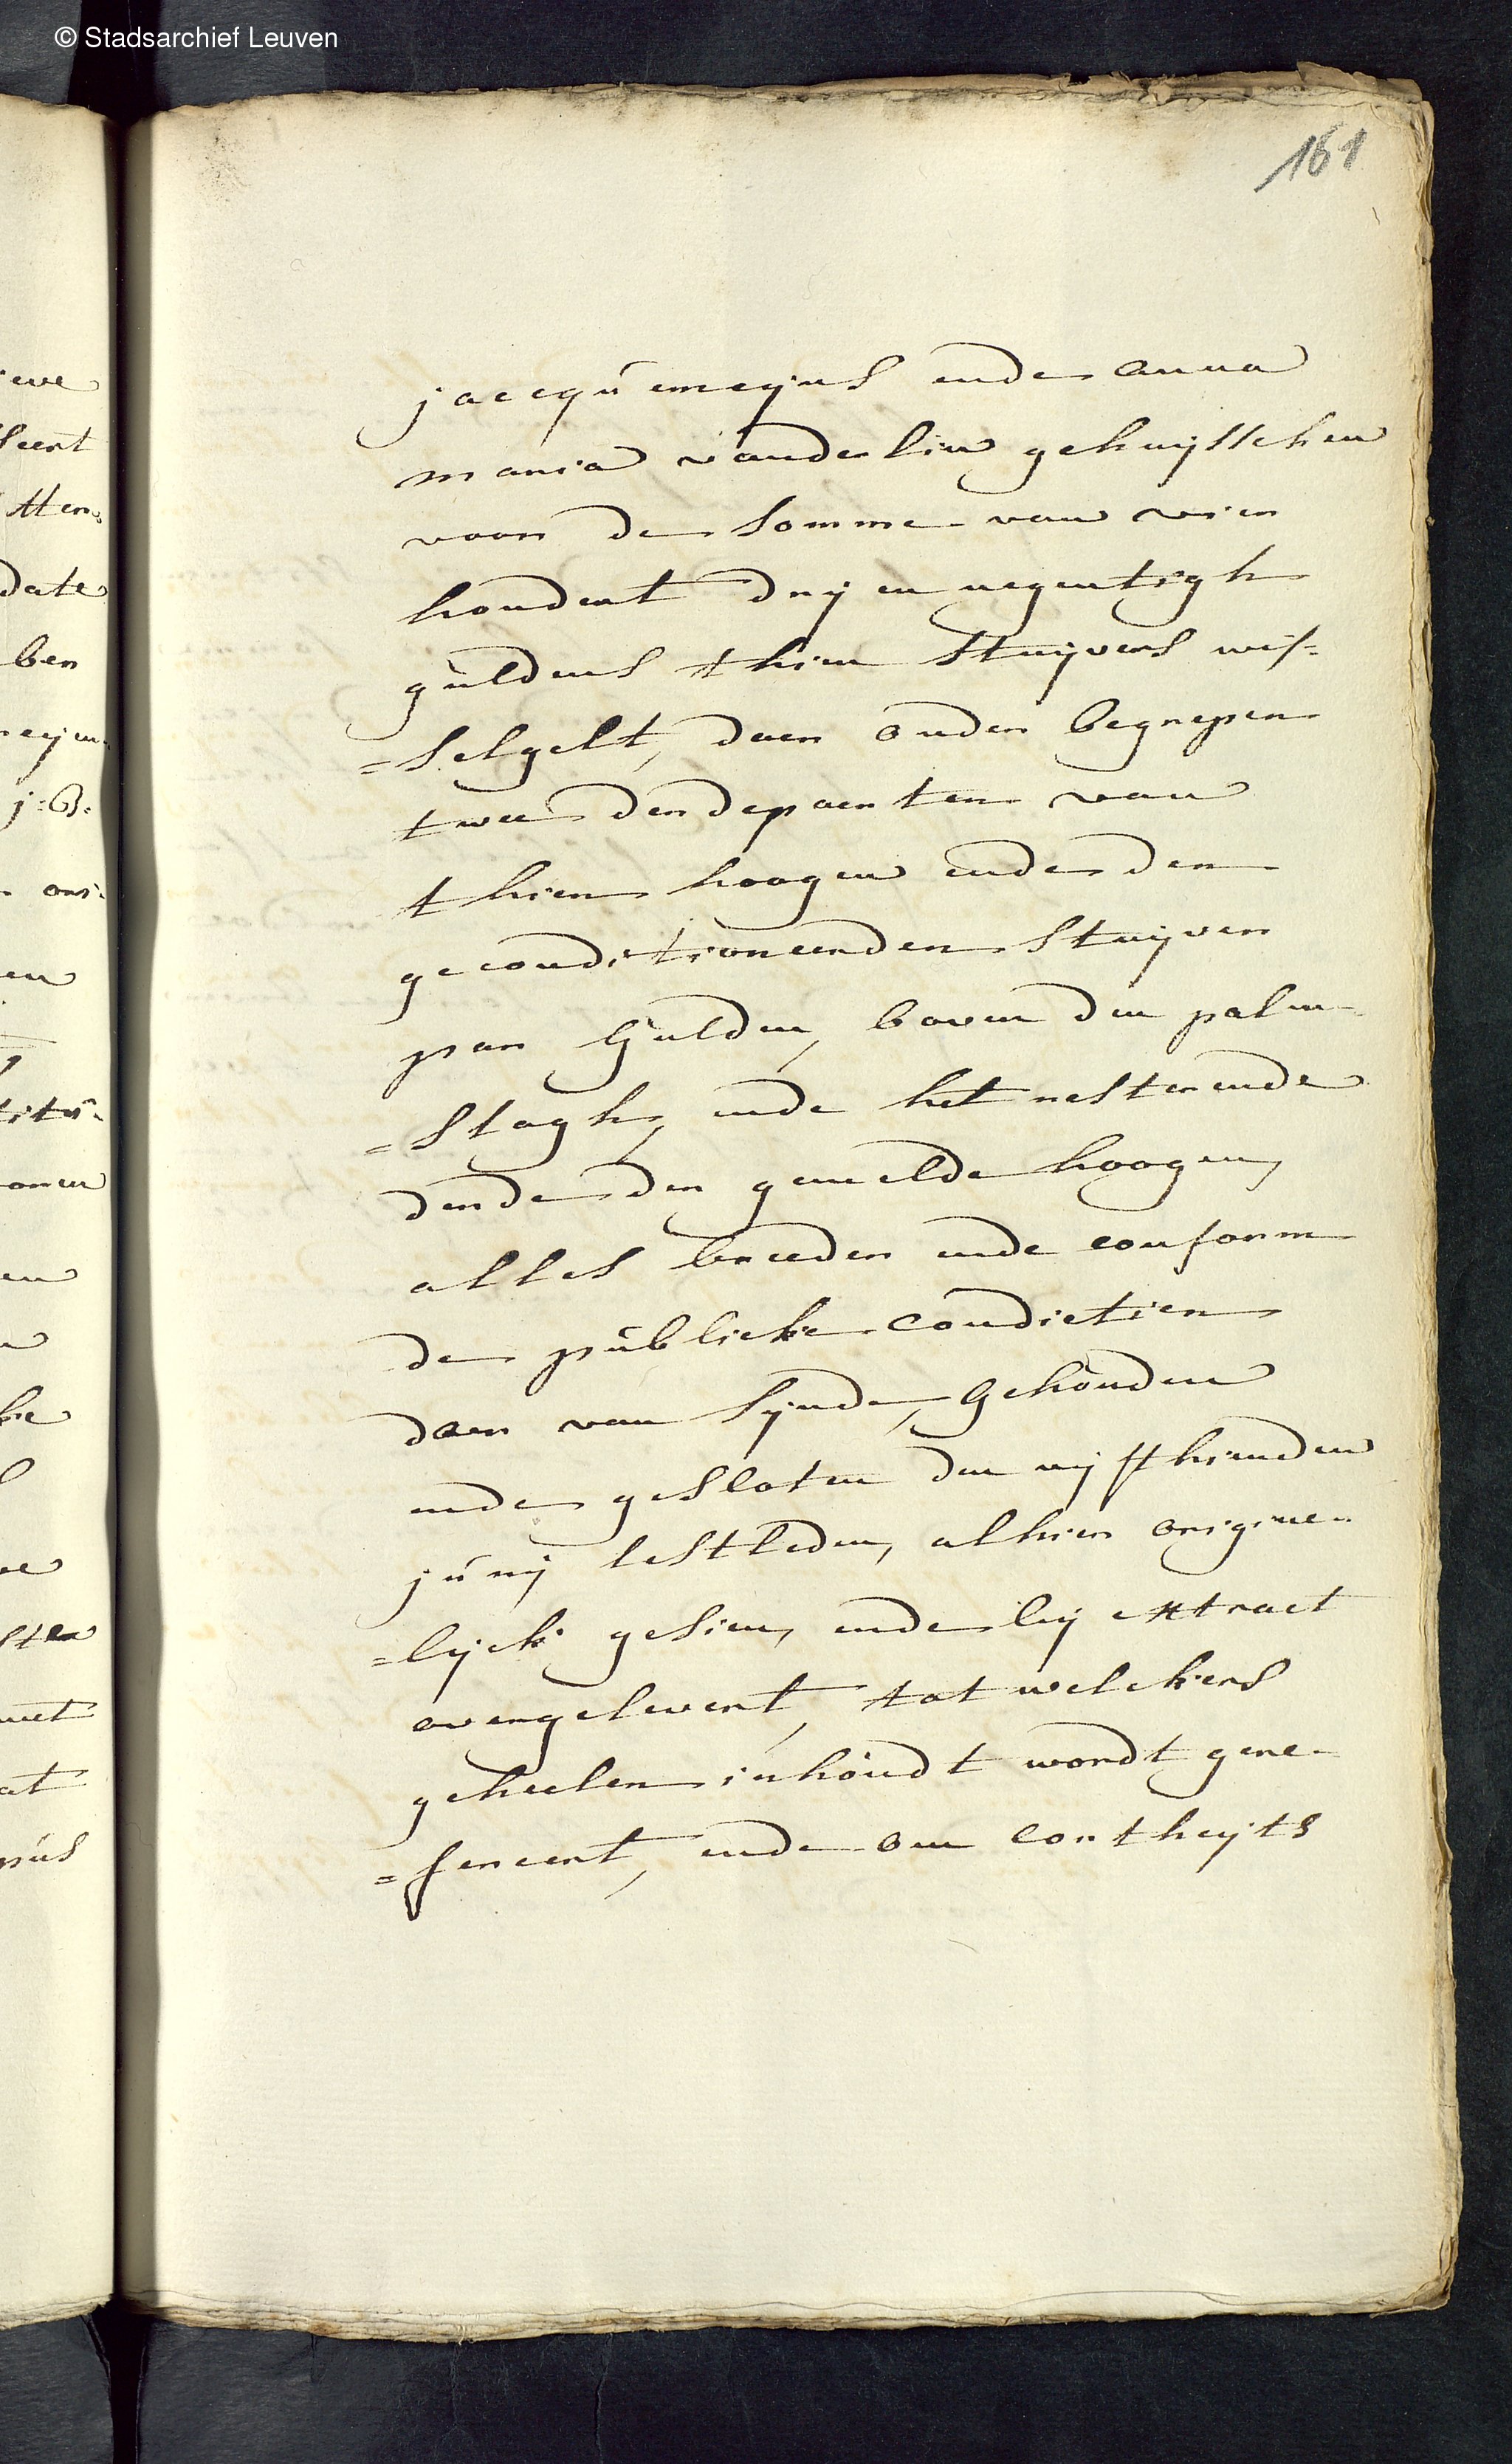 © Stadsarchief Leuven
161
jacequemeijns ende anna
maria vande lin gehuijsschen
voor de somme van vier
hondert drij en negentigh
guldens thien stuijvers wis=
=selgelt, daer onder begrepen
twee derdepaerten van
thien hoogen ende den
geconditioneerden stuijver
par gulden, boven den palm
=slagh, ende het resterende
derde der gemelde hoogen,
alles breeder ende conform
de publieke condictien
daer van sijnde, gehouden
ende gesloten den vijfthienden
junij lestleden, alhier origine
=lijck gesien, ende bij extract
overgelevert, tot welckers
geheelen inhoudt wordt gere
=fereert, ende om cortheyts